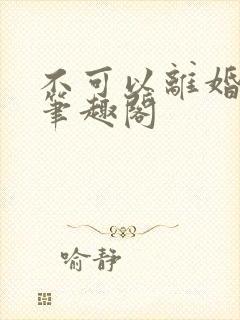 不可以離婚
筆趣閣
喻靜